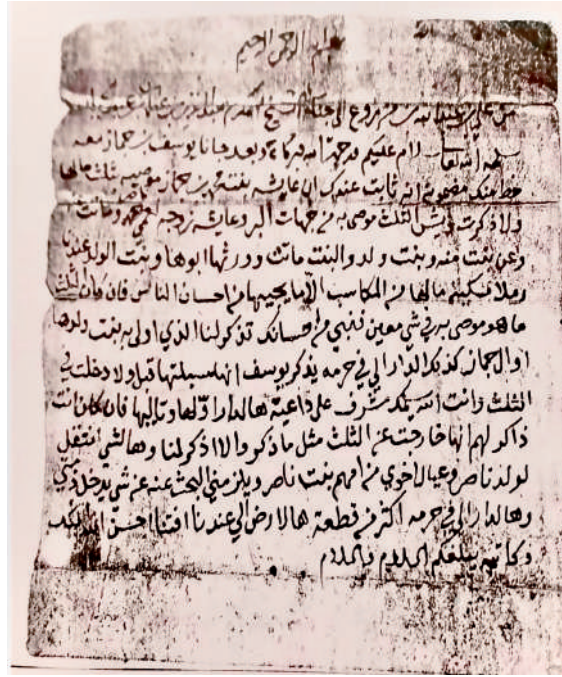 بسم الله الرحمن الرحيم
من علي بن عبدالله بن الى جناب الشيخ المكرم بن
سلمه الله تعالى سلام عليكم ورحمة الله وبركاته وبعد جانا يوسف بن جماز معه
خط منك مضمونه انه ثابت عندك ان عايشه بنت بن جماز موصيه بثلث مالها
ولا ذكرت ويش الثلث موصى به من جهات البر وعايشه زوجة وماتت
وعن بنت منه وبنت ولد والبنت ماتت وورثها ابوها وبنت الولد عندنا
رملا تسكينه مالها من المكاسب الا ما يجيها من احسان الناس فان كان الثلث
ما هو موصى به في شي معين فنبي من احسانك تذكر لنا الذي اولى به بنت ولدها
او ال جماز كذلك الدار الي في حرمه يذكر يوسف انها مسبلتها قبل ولا دخلت في
الثلث وانت الله يسلمك مشرف على هالدار اولها وتاليها فان كان انت
ذاكر لهم انها خارجت عن الثلث مثل ما ذكروا والا اذكر لنا وهالشي انتقل
لولد ناصر وعيال اخوي من امهم بنت ناصر ويلزمني البحث عنه عن شي يدخل ذمتي
وهالدار الي في حرمه اكثر من قطعة هالارض الي عندنا افتنا احسن الله اليك
وكاتبه يبلغكم السلام والسلام